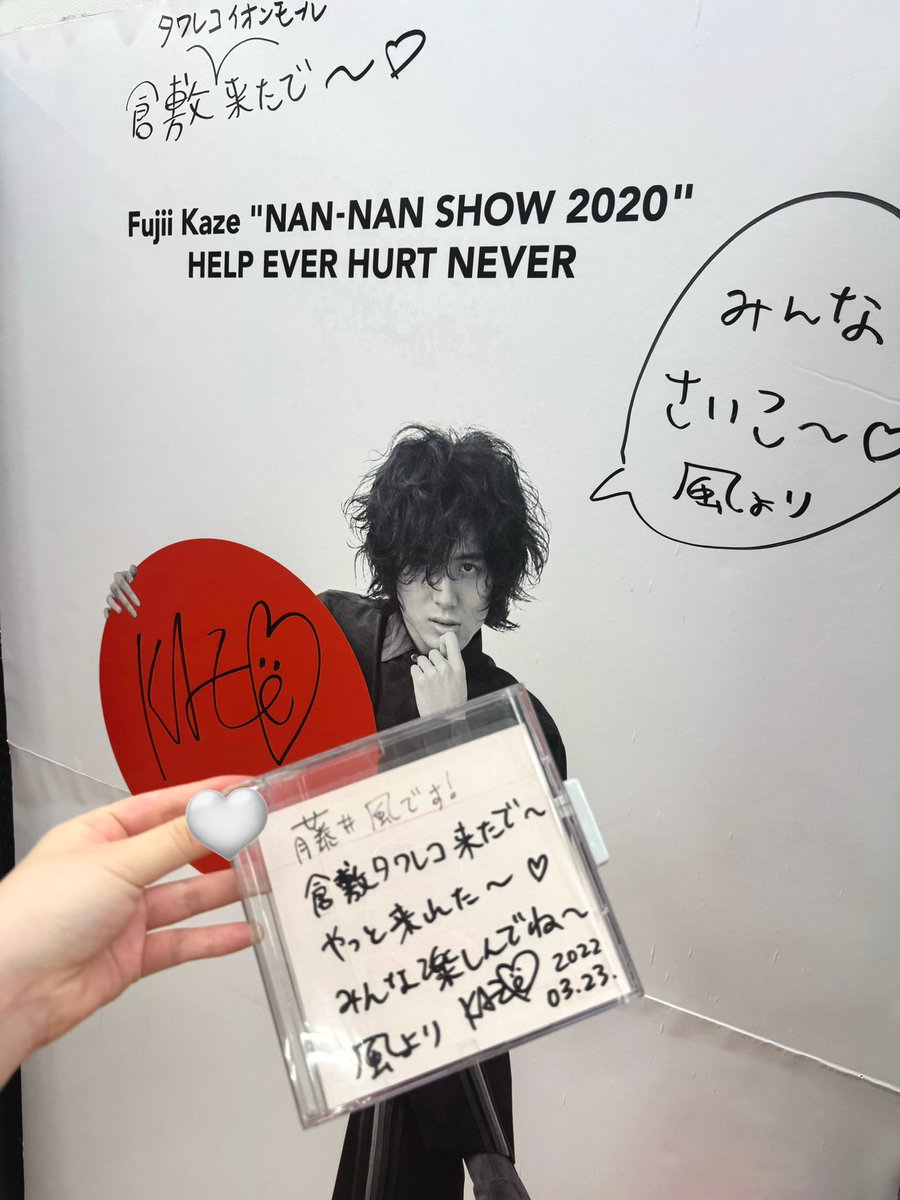 タワレコイオンモール
倉敷来たで〜♡
Fujii Kaze "NAN-NAN SHOW 2020"
HELP EVER HURT NEVER
みんな
さいこ〜♡
風より
KAZE
藤井 風です!
倉敷タワレコ来たで〜
やっと来れた〜♡
みんな楽しんでね〜
風より KAZE 2022
03.23.